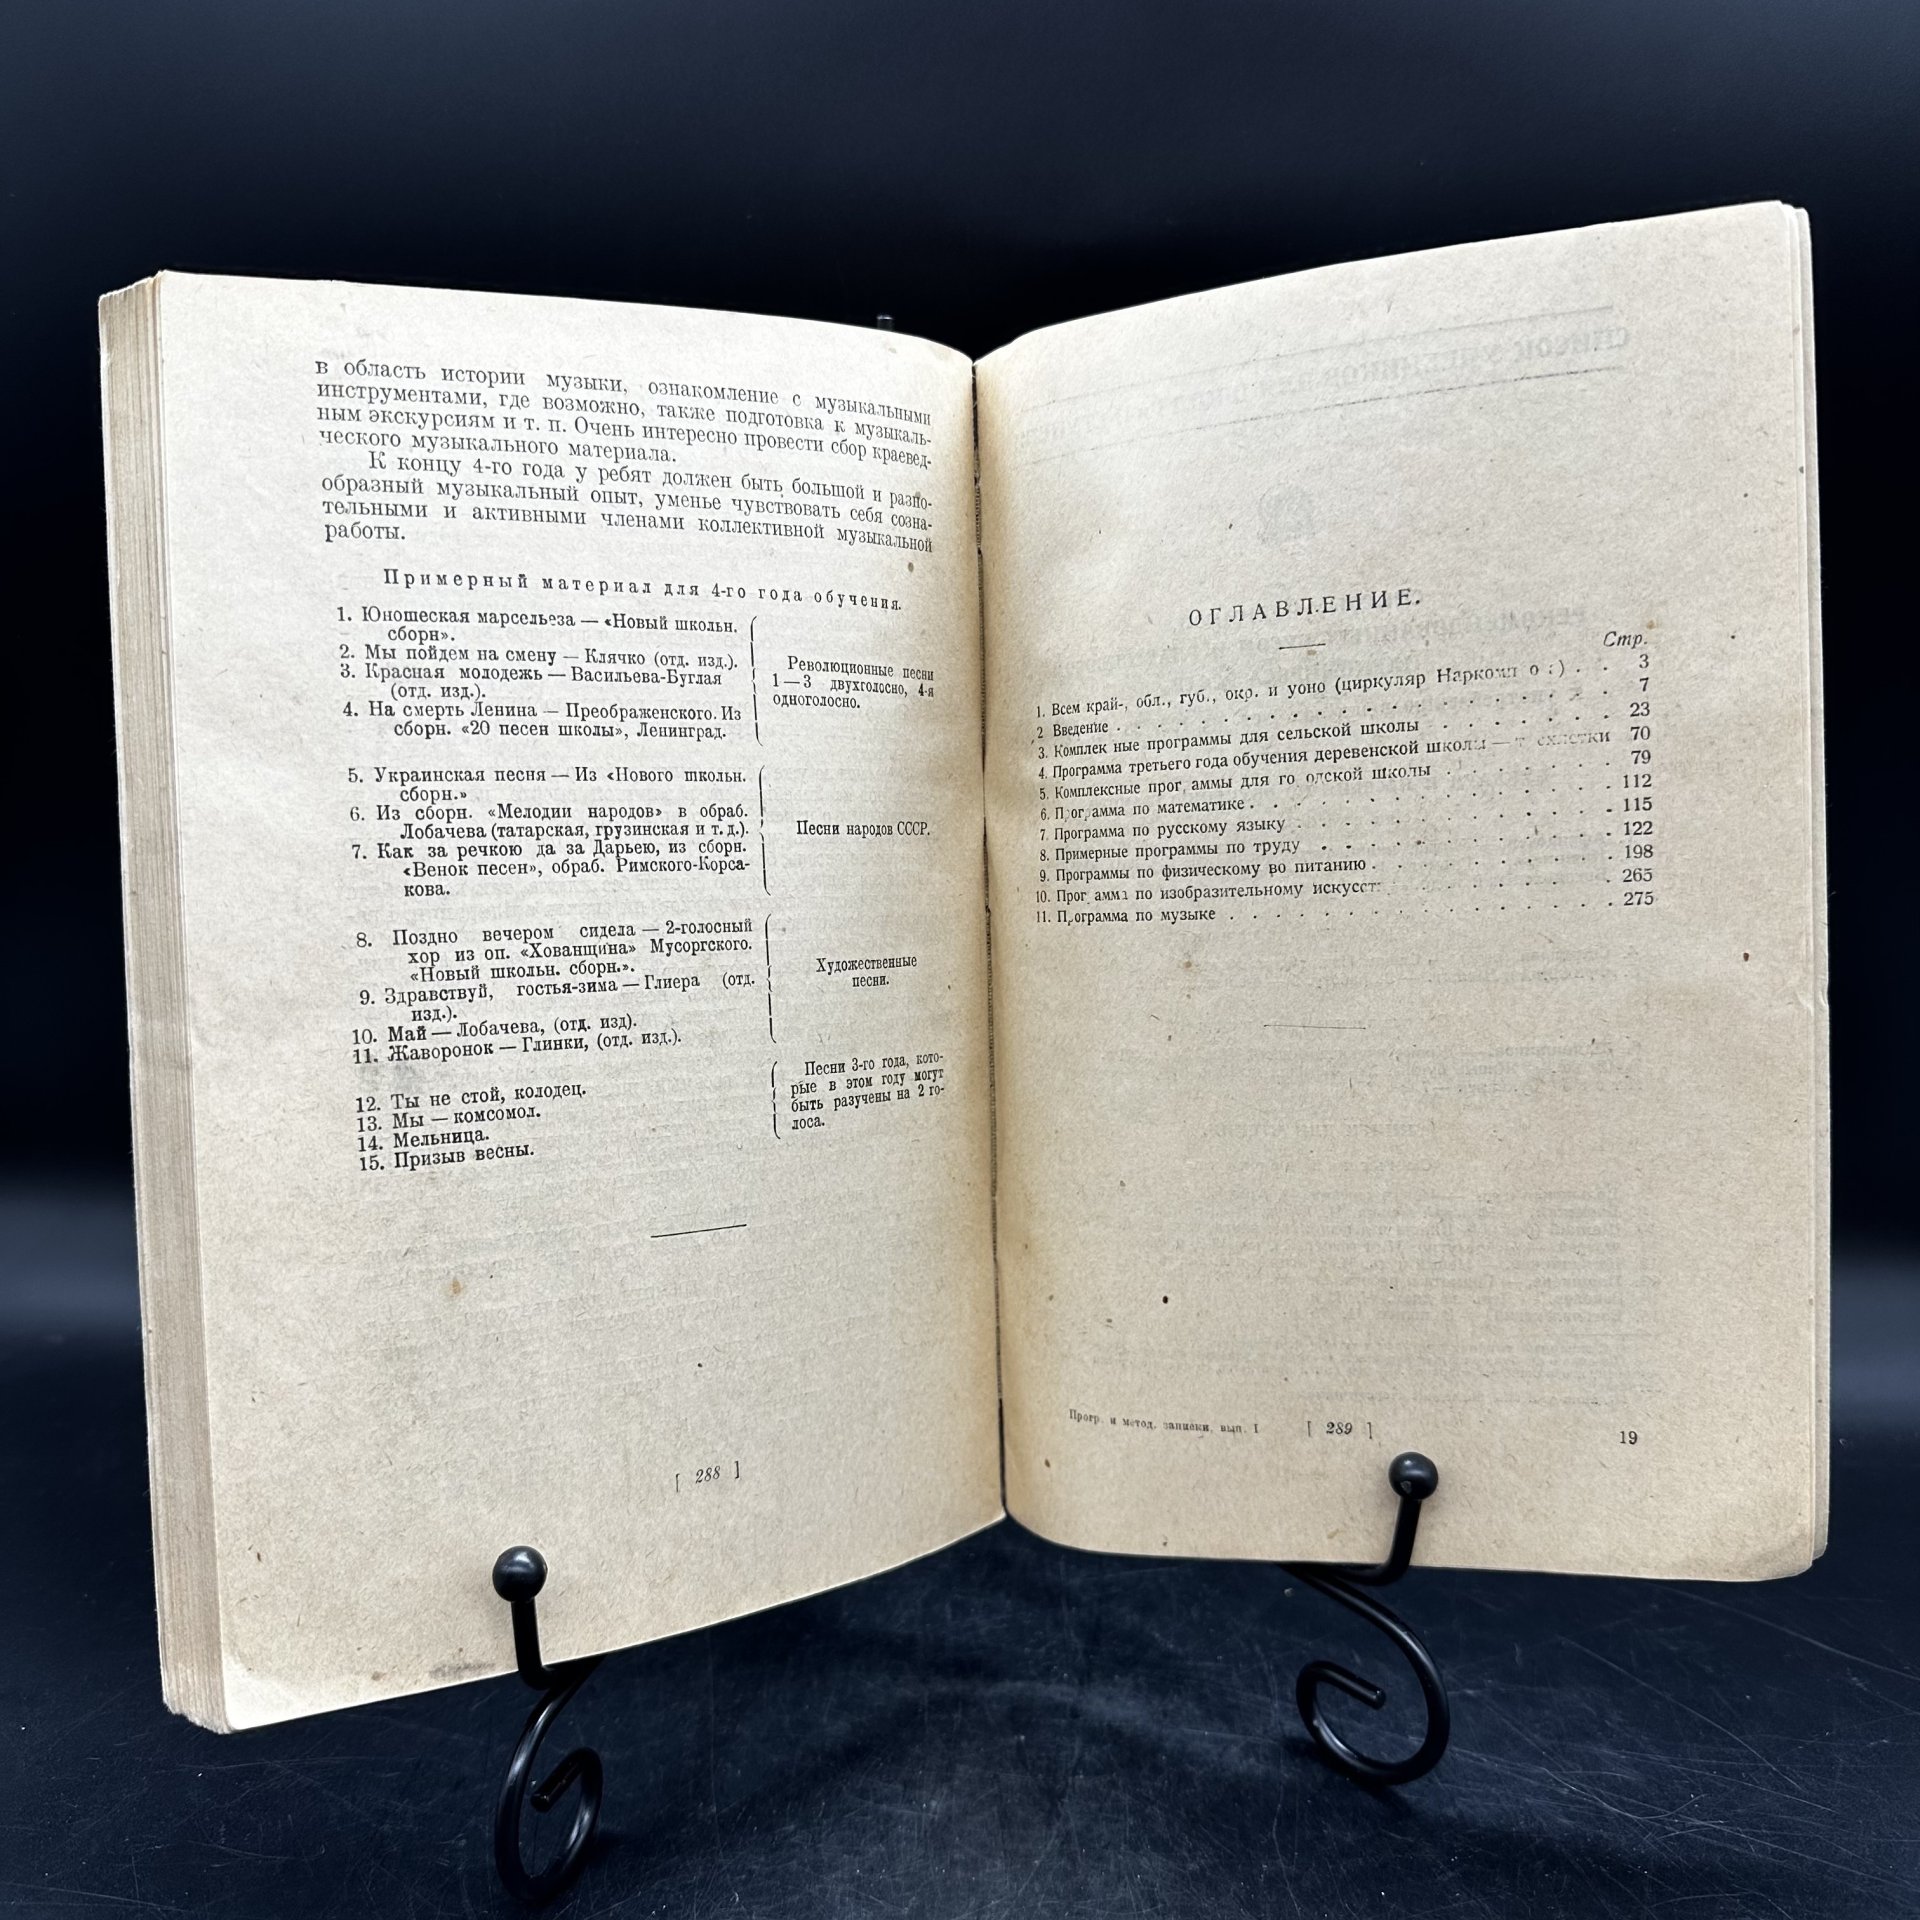 в область истории музыки, ознакомление с музыкальными
инструментами, где возможно, также подготовка к музыкаль-
ным экскурсиям и т. п. Очень интересно провести сбор краевед-
ческого музыкального материала.
К концу 4-го года у ребят должен быть большой и разно-
образный музыкальный опыт, уменье чувствовать себя созна-
тельными и активными членами коллективной музыкальной
работы.
Примерный материал для 4-го года обучения.
1. Юношеская марсельеза — «Новый школьн.
сборн».
2. Мы пойдем на смену — Клячко (отд. изд.).
3. Красная молодежь — Васильева-Буглая
(отд. изд.).
4. На смерть Ленина — Преображенского. Из
сборн. «20 песен школы», Ленинград.
Революционные песни
1 — 3 двухголосно, 4-я
одноголосно.
5. Украинская песня — Из «Нового школьн.
сборн.»
6. Из сборн. «Мелодии народов» в обраб.
Лобачева (татарская, грузинская и т. д.).
7. Как за речкою да за Дарьею, из сборн.
«Венок песен», обраб. Римского-Корса-
кова.
Песни народов СССР.
8. Поздно вечером сидела — 2-голосный
хор из оп. «Хованщина» Мусоргского.
«Новый школьн. сборн.».
9. Здравствуй, гостья-зима — Глиера (отд.
изд.).
10. Май — Лобачева, (отд. изд).
11. Жаворонок — Глинки, (отд. изд.).
Художественные
песни.
12. Ты не стой, колодец.
13. Мы — комсомол.
14. Мельница.
15. Призыв весны.
Песни 3-го года, кото-
рые в этом году могут
быть разучены на 2 го-
лоса.
[ 288 ]
ОГЛАВЛЕНИЕ.
Стр.
1. Всем край-, обл., губ., окр. и уоно (циркуляр . . 3
2 Введение . . . . . . . . . . 7
3. Комплек ные программы для сельской школы . . . . . 23
4. Программа третьего года обучения деревенской школы — 70
5. Комплексные прог, аммы для го одской школы . . . . . 79
6. Прог, амма по математике . . . . . . . . . 112
7. Программа по русскому языку . . . . . . . . 115
8. Примерные программы по труду . . . . . . . . 122
9. Программы по физическому во питанию . . . . . . 198
10. Прог амма по изобразительному . . . . . . 265
11. Программа по музыке . . . . . . . . . . 275
Прогр. и метод. записки, вып. I [ 289 ] 19